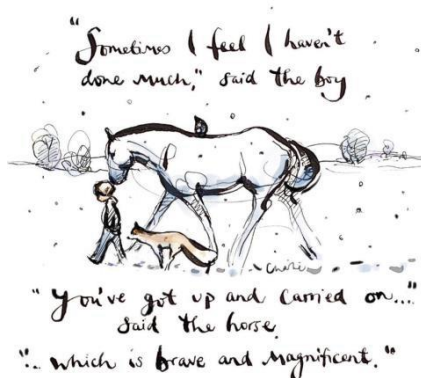 "Sometimes I feel I haven't
done much," said the boy
Charlie
"You've got up and carried on..."
said the horse
".. which is brave and magnificent."